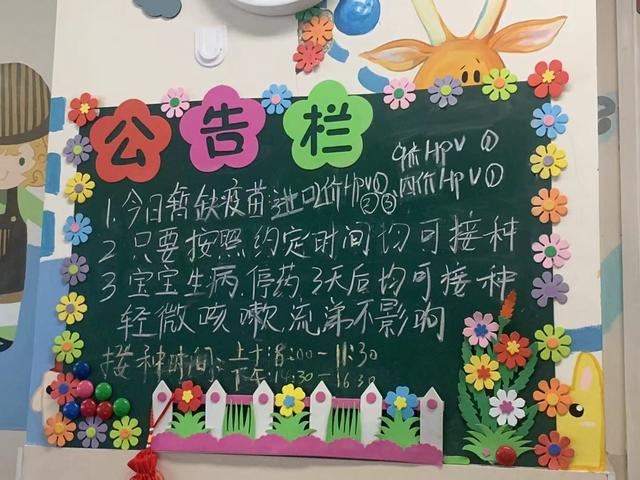 公告栏
九价HPV①
1.今日暂缺疫苗进口价HPV①②③ 四价HPV①
2 只要按照约定时间均可接种
3 宝宝生病,停药3天后均可接种
轻微咳嗽,流涕不影响
接种时间:上午:8:00-11:30
下午:14:30-16:30